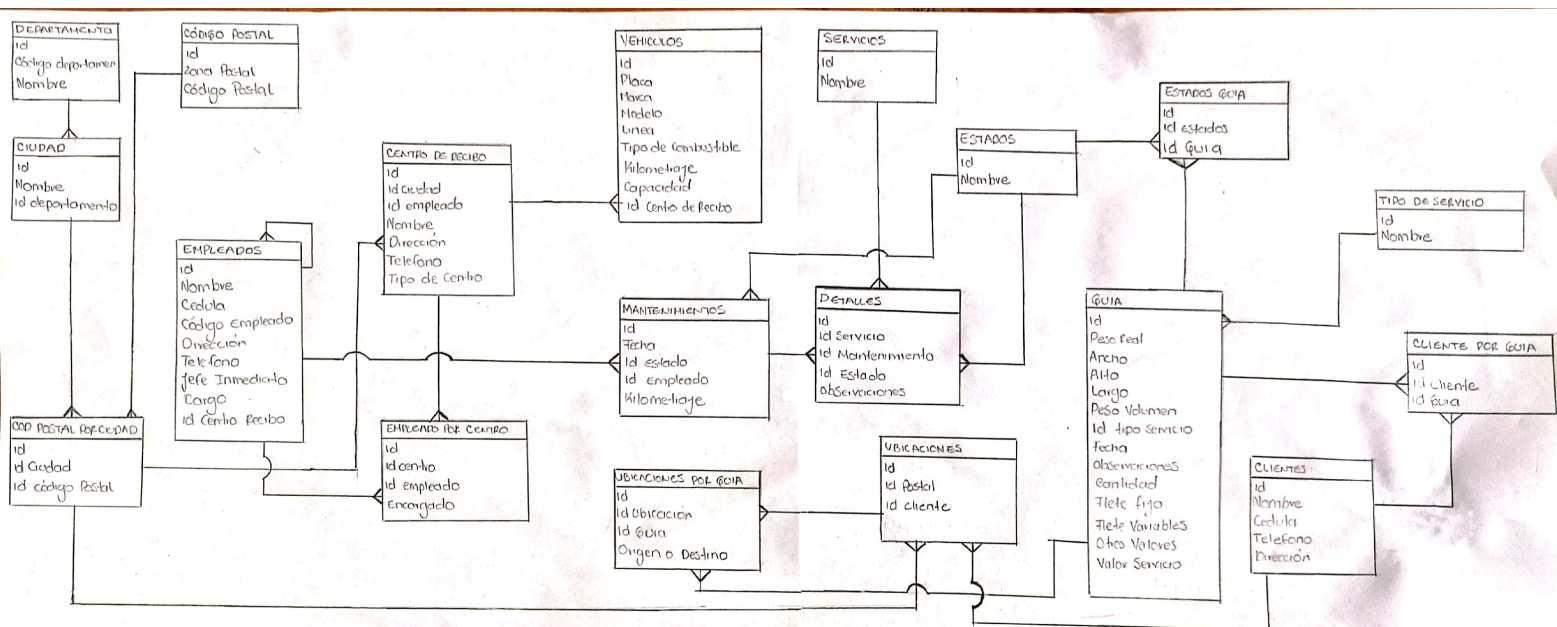 DEPARTAMENTO
Id
Código departamen
Nombre
CÓDIGO POSTAL
Id
Zona Postal
Código Postal
CIUDAD
Id
Nombre
Id departamento
EMPLEADOS
Id
Nombre
Cedula
Código Empleado
Dirección
Telefono
Jefe Inmediato
Cargo
Id Centro Recibo
COD POSTAL POR CIUDAD
Id
Id Ciudad
Id código Postal
CENTRO DE RECIBO
Id
Id ciudad
Id empleado
Nombre
Dirección
Telefono
Tipo de Centro
EMPLEADO POR CENTRO
Id
Id centro
Id empleado
Encargado
VEHICULOS
Id
Placa
Marca
Modelo
Linea
Tipo de Combustible
Kilometraje
Capacidad
Id Centro de Recibo
MANTENIMIENTOS
Id
Fecha
Id Estado
Id Empleado
Kilometraje
UBICACIONES POR GUIA
Id
Id Ubicación
Id Guia
Origen o Destino
SERVICIOS
Id
Nombre
DETALLES
Id
Id Servicio
Id Mantenimiento
Id Estado
Observaciones
UBICACIONES
Id
Id Postal
Id cliente
ESTADOS
Id
Nombre
ESTADOS GUIA
Id
Id estados
Id Guia
GUIA
Id
Peso Real
Ancho
Alto
Largo
Peso Volumen
Id tipo Servicio
Fecha
Observaciones
Cantidad
Flete fijo
Flete Variables
Otros Valores
Valor Servicio
TIPO DE SERVICIO
Id
Nombre
CLIENTE POR GUIA
Id
Id cliente
Id Guia
CLIENTES
Id
Nombre
Cedula
Telefono
Dirección